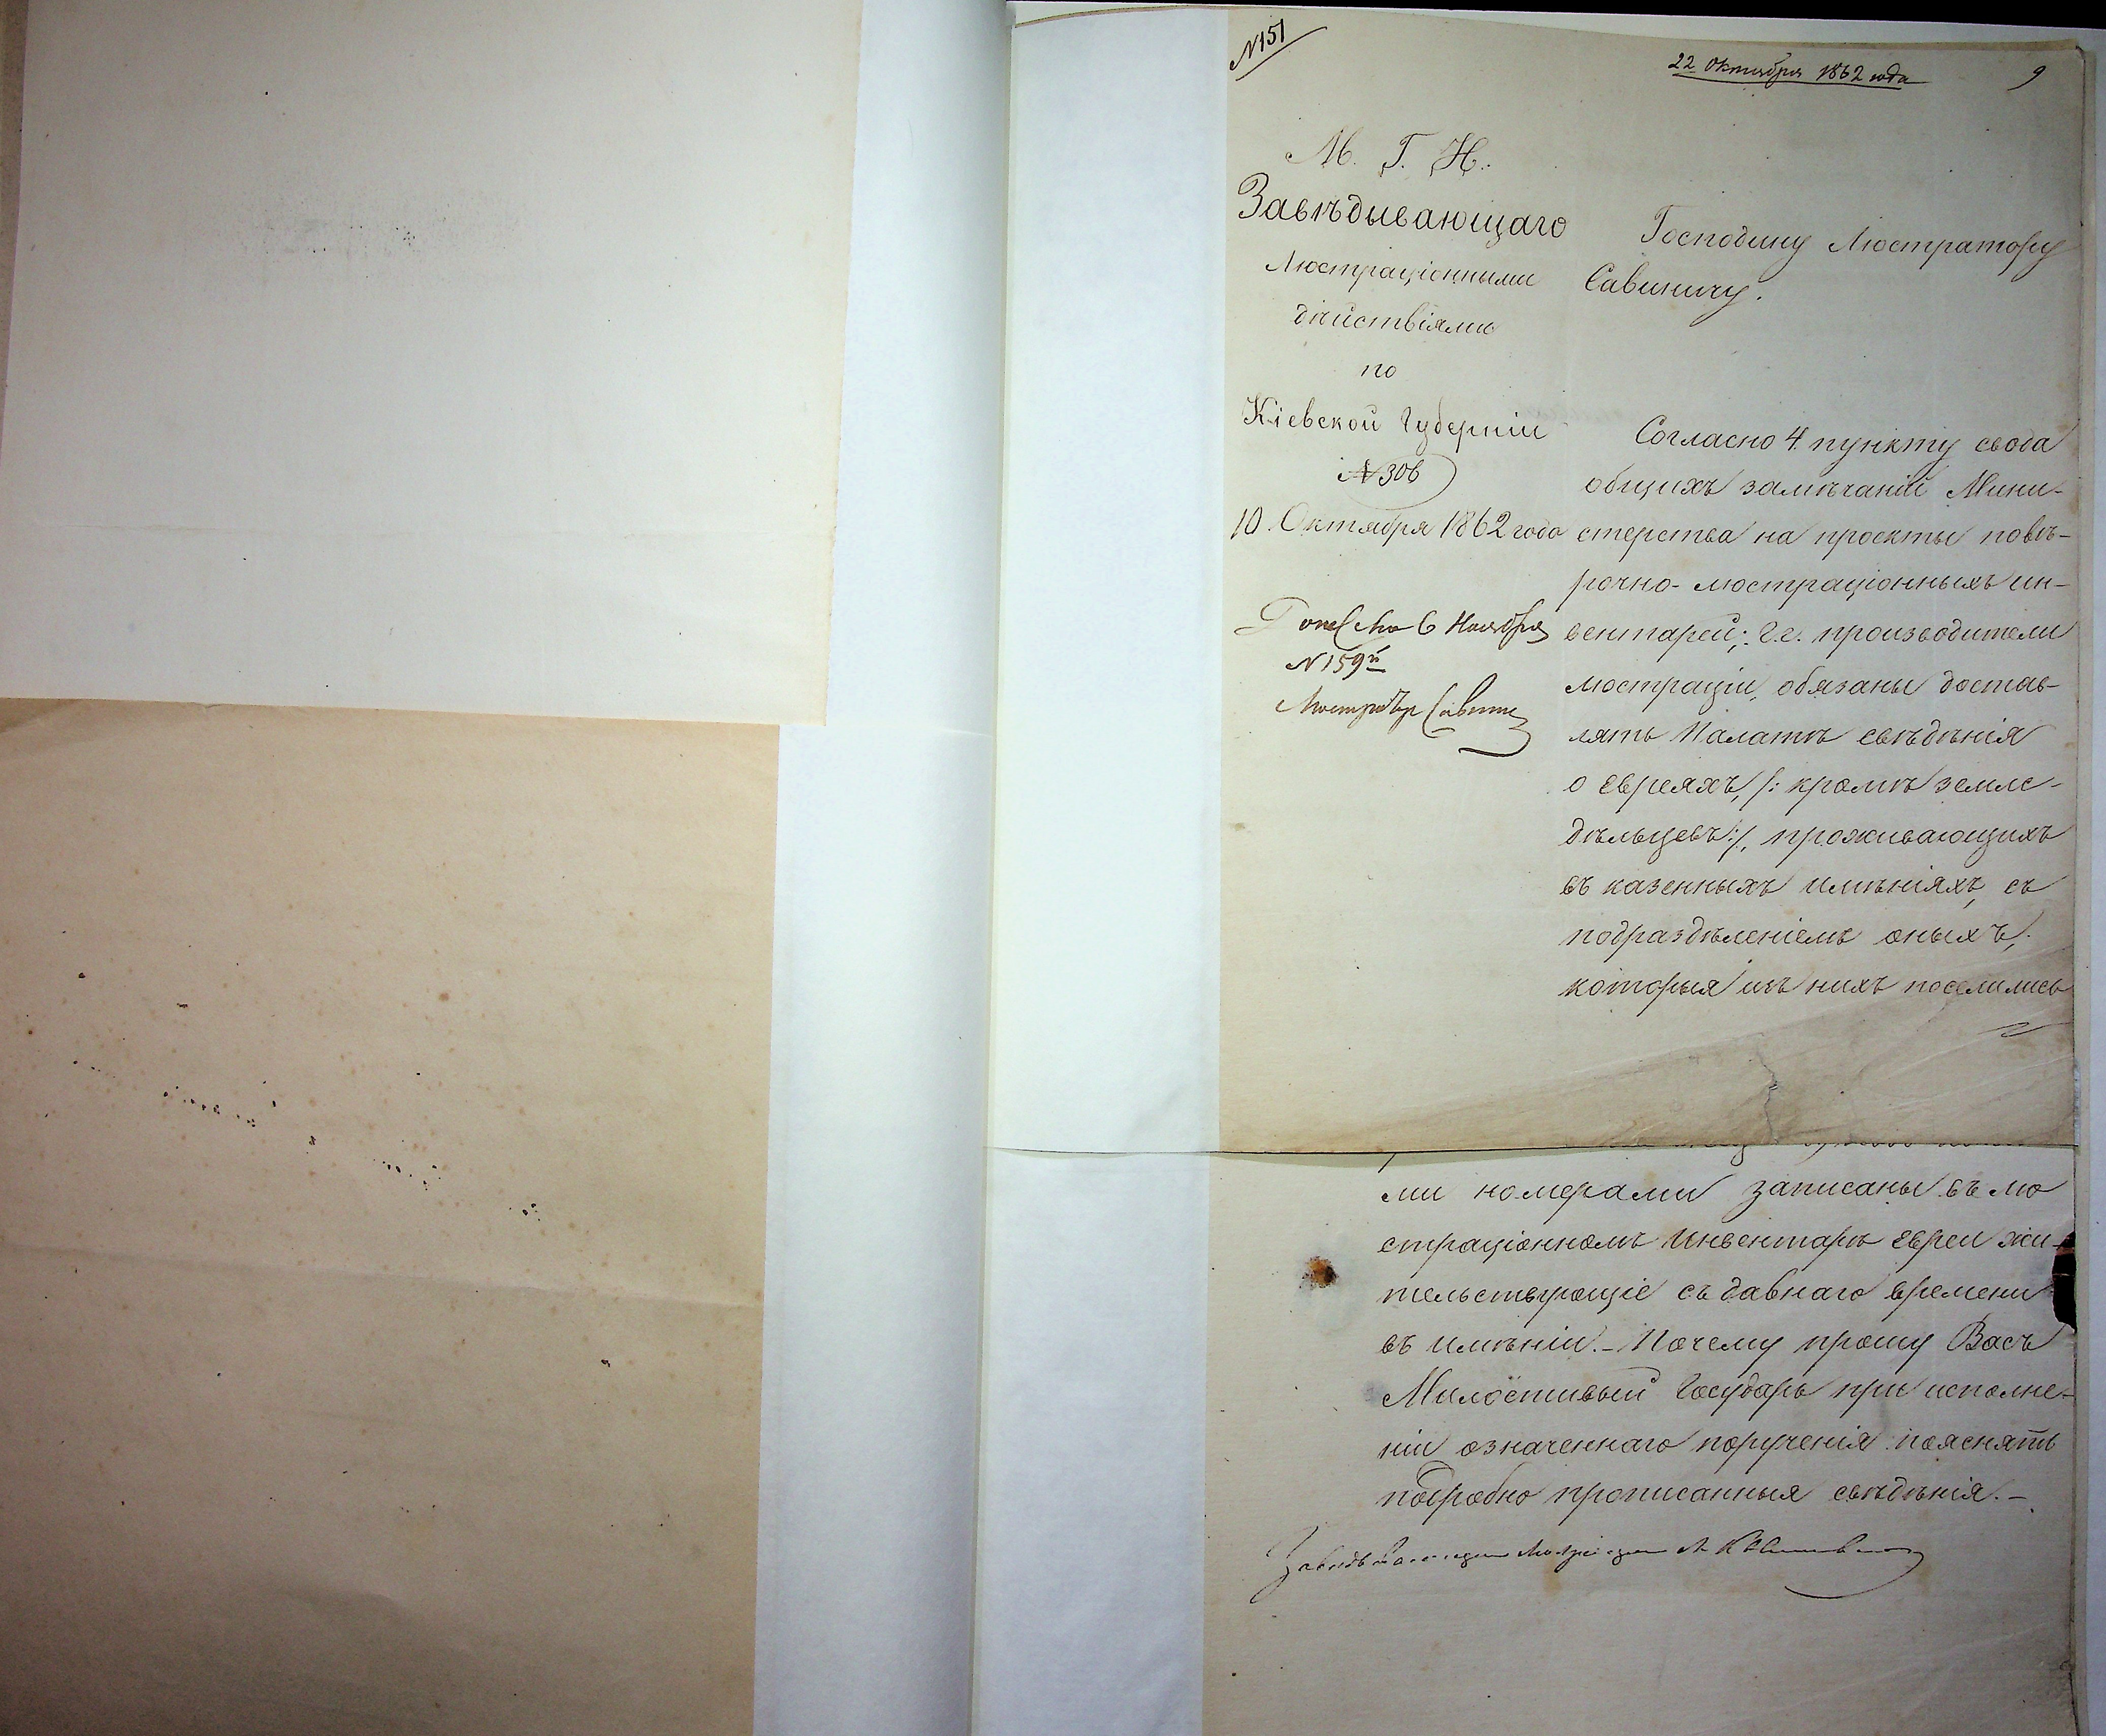 N 151
22 Октября 1862 года
9
М. Г. И.
Завѣдывающаго
Люстраціонными
дѣйствіями
по
Кіевской Губерніи
N 306
10 Октября 1862 года
6 Ноября
N 159й
Люстраторъ
Господину Люстратору
Савиничу.
Согласно 4 пункту свода
общихъ замѣчаній Мини-
стерства на проэкты повѣ-
рочно-люстраціонныхъ ин-
вентарей; г.г. производители
люстраціи, обязаны достав-
лять Палатѣ свѣдѣнія
о Евреяхъ, /: кромѣ земле-
дѣльцевъ:/, проживающихъ
въ казенныхъ имѣніяхъ, съ
подраздѣленіемъ оныхъ,
которыя изъ нихъ поселились
ми номерами записаны въ лю
страціонномъ Инвентарѣ Евреи жи-
тельствующіе съ давнаго времени
въ имѣніи. – Почему прошу Васъ
Милостивый Государь при исполне-
ніи означеннаго порученія пояснять
подробно прописанныя свѣдѣнія. –